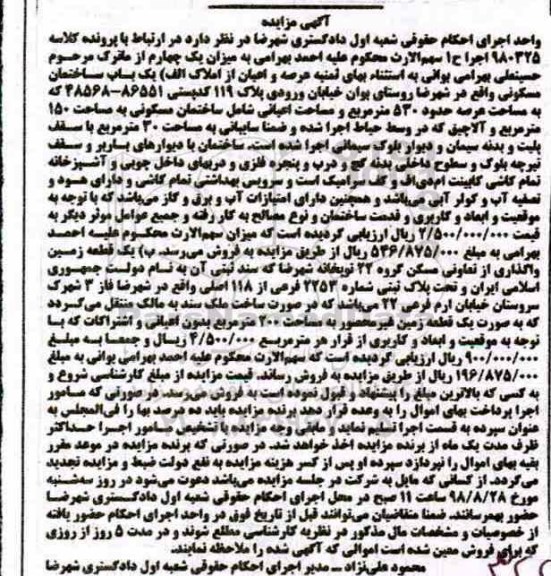 آگهی مزایده
واحد اجرای احکام حقوقی شعبه اول دادگستری شهرضا در نظر دارد در ارتباط با پرونده کلاسه
۹۸۰۳۲۵ اجرا ح۱ سهم‌الارث محکوم علیه احمد بهرامی به میزان یک چهارم از ماترک مرحوم
حسینعلی بهرامی بوانی به استثناء بهای ثمنیه عرصه و اعیان از املاک الف) یک باب ساختمان
مسکونی واقع در شهرضا روستای بوان خیابان ورودی پلاک ۱۱۹ کدپستی ۸۶۵۵۱-۴۸۵۶۸ که
به مساحت عرصه حدود ۵۳۰ مترمربع و مساحت اعیانی شامل ساختمان مسکونی به مساحت ۱۵۰
مترمربع و آلاچیق که در وسط حیاط اجرا شده و ضمنا سایبانی به مساحت ۳۰ مترمربع با سقف
پلیت و بدنه سیمان و دیوار بلوک سیمانی اجرا شده است. ساختمان با دیوارهای باربر و سقف
تیرچه بلوک و سطوح داخلی بدنه گچ و درب و پنجره فلزی و دربهای داخل چوبی و آشپزخانه
تمام کاشی کابینت ام‌دی‌اف و کف سرامیک است و سرویس بهداشتی تمام کاشی و دارای هود و
تصفیه آب و کولر آبی می‌باشد و همچنین دارای امتیازات آب و برق و گاز می‌باشد که با توجه به
موقعیت و ابعاد و کاربری و قدمت ساختمان و نوع مصالح به کار رفته و جمیع عوامل موثر دیگر به
قیمت ۲/۵۰۰/۰۰۰/۰۰۰ ریال ارزیابی گردیده است که میزان سهم‌الارث محکوم علیه احمد
بهرامی به مبلغ ۵۴۶/۸۷۵/۰۰۰ ریال از طریق مزایده به فروش می‌رسد. ب) یک قطعه زمین
واگذاری از تعاونی مسکن گروه ۲۲ توپخانه شهرضا که سند ثبتی آن به نام دولت جمهوری
اسلامی ایران و تحت پلاک ثبتی شماره ۲۲۵۳ فرعی از ۱۱۸ اصلی واقع در شهرضا فاز ۳ شهرک
سروستان خیابان ارم فرعی ۲۲ می‌باشد که در صورت ساخت ملک سند به مالک منتقل می‌گردد
که به صورت یک قطعه زمین غیرمحصور به مساحت ۲۰۰ مترمربع بدون اعیانی و اشتراکات که با
توجه به موقعیت و ابعاد و کاربری از قرار هر مترمربع ۴/۵۰۰/۰۰۰ ریال و جمعا به مبلغ
۹۰۰/۰۰۰/۰۰۰ ریال ارزیابی گردیده است که سهم‌الارث محکوم علیه احمد بهرامی بوانی به مبلغ
۱۹۶/۸۷۵/۰۰۰ ریال از طریق مزایده به فروش رساند. قیمت مزایده از مبلغ کارشناسی شروع و
به کسی که بالاترین مبلغ را پیشنهاد و قبول نموده است به فروش می‌رسد. در صورتی که مامور
اجرا پرداخت بهای اموال را به وعده قرار دهد برنده مزایده باید ده درصد بها را فی‌المجلس به
عنوان سپرده به قسمت اجرا تسلیم نماید و مابقی وجه مزایده با تشخیص مامور اجرا حداکثر
ظرف مدت یک ماه از برنده مزایده اخذ خواهد شد. در صورتی که برنده مزایده در موعد مقرر
بقیه بهای اموال را نپردازد سپرده او پس از کسر هزینه مزایده به نفع دولت ضبط و مزایده تجدید
می‌گردد. از کسانی که مایل به شرکت در جلسه مزایده می‌باشد دعوت می‌شود در روز سه‌شنبه
مورخ ۹۸/۸/۲۸ ساعت ۱۱ صبح در محل اجرای احکام حقوقی شعبه اول دادگستری شهرضا
حضور بهم‌رسانند. ضمنا متقاضیان می‌توانند قبل از تاریخ فوق در واحد اجرای احکام حضور یافته
از خصوصیات و مشخصات مال مذکور در نظریه کارشناسی مطلع شوند و در مدت ۵ روز از روزی
که برای فروش معین شده است اموالی که آگهی شده را ملاحظه نمایند.
محمود علی‌نژاد – مدیر اجرای احکام حقوقی شعبه اول دادگستری شهرضا